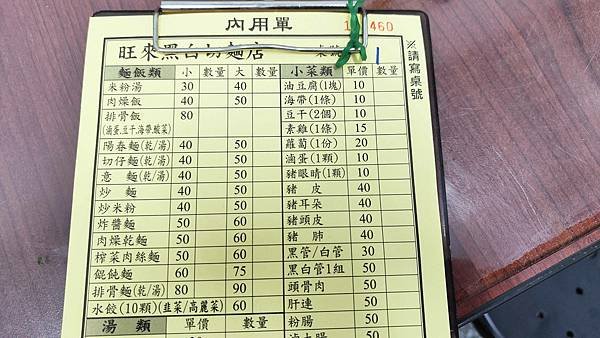 內用單
460
旺來黑白切麵店
※請寫桌號
1
麵飯類 小 數量 大 數量 小菜類 單價 數量
米粉湯 30 40 油豆腐(1塊) 10
肉燥飯 40 50 海帶(1條) 10
排骨飯 80 豆干(2個) 10
(滷蛋,豆干,海帶,酸菜) 素雞(1條) 15
蘿蔔(1份) 20
陽春麵(乾/湯) 40 50 滷蛋(1顆) 10
切仔麵(乾/湯) 40 50 豬眼睛(1顆) 10
意 麵(乾/湯) 40 50 豬 皮 40
炒 麵 40 50 豬耳朵 40
炒米粉 40 50 豬頭皮 40
炸醬麵 50 60 豬 肺 40
肉燥乾麵 50 60 黑管/白管 30
榨菜肉絲麵 50 60 黑白管1組 50
餛飩麵 60 75 頭骨肉 50
排骨麵(乾/湯) 80 90 肝連 50
水餃(10顆)(韭菜/高麗菜) 60 粉腸 50
湯 類 單價 數量